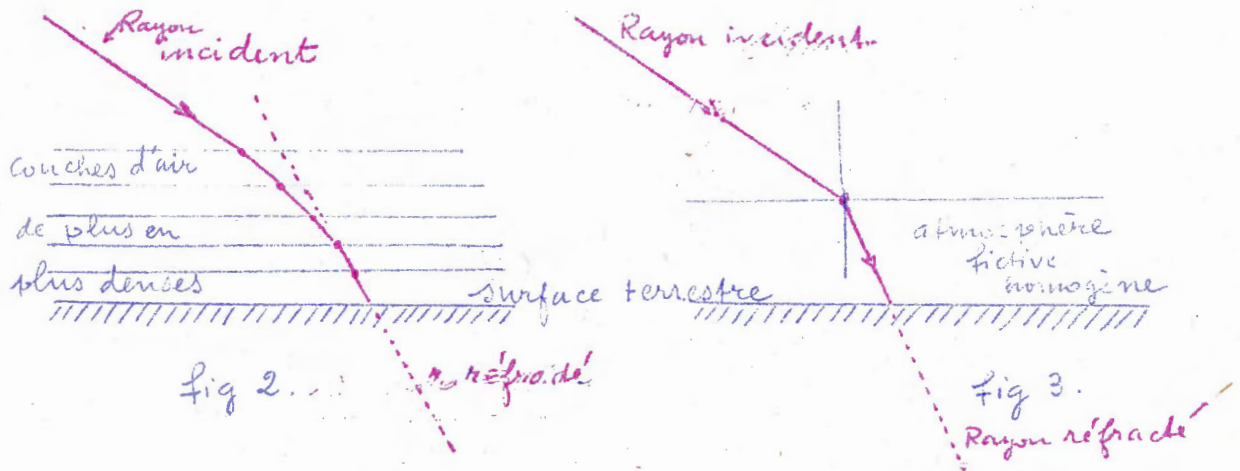 Rayon
incident
couches d'air
de plus en
plus denses
surface terrestre
fig 2.
Rayon incident
atmosphère
fictive
homogène
fig 3.
Rayon réfracté